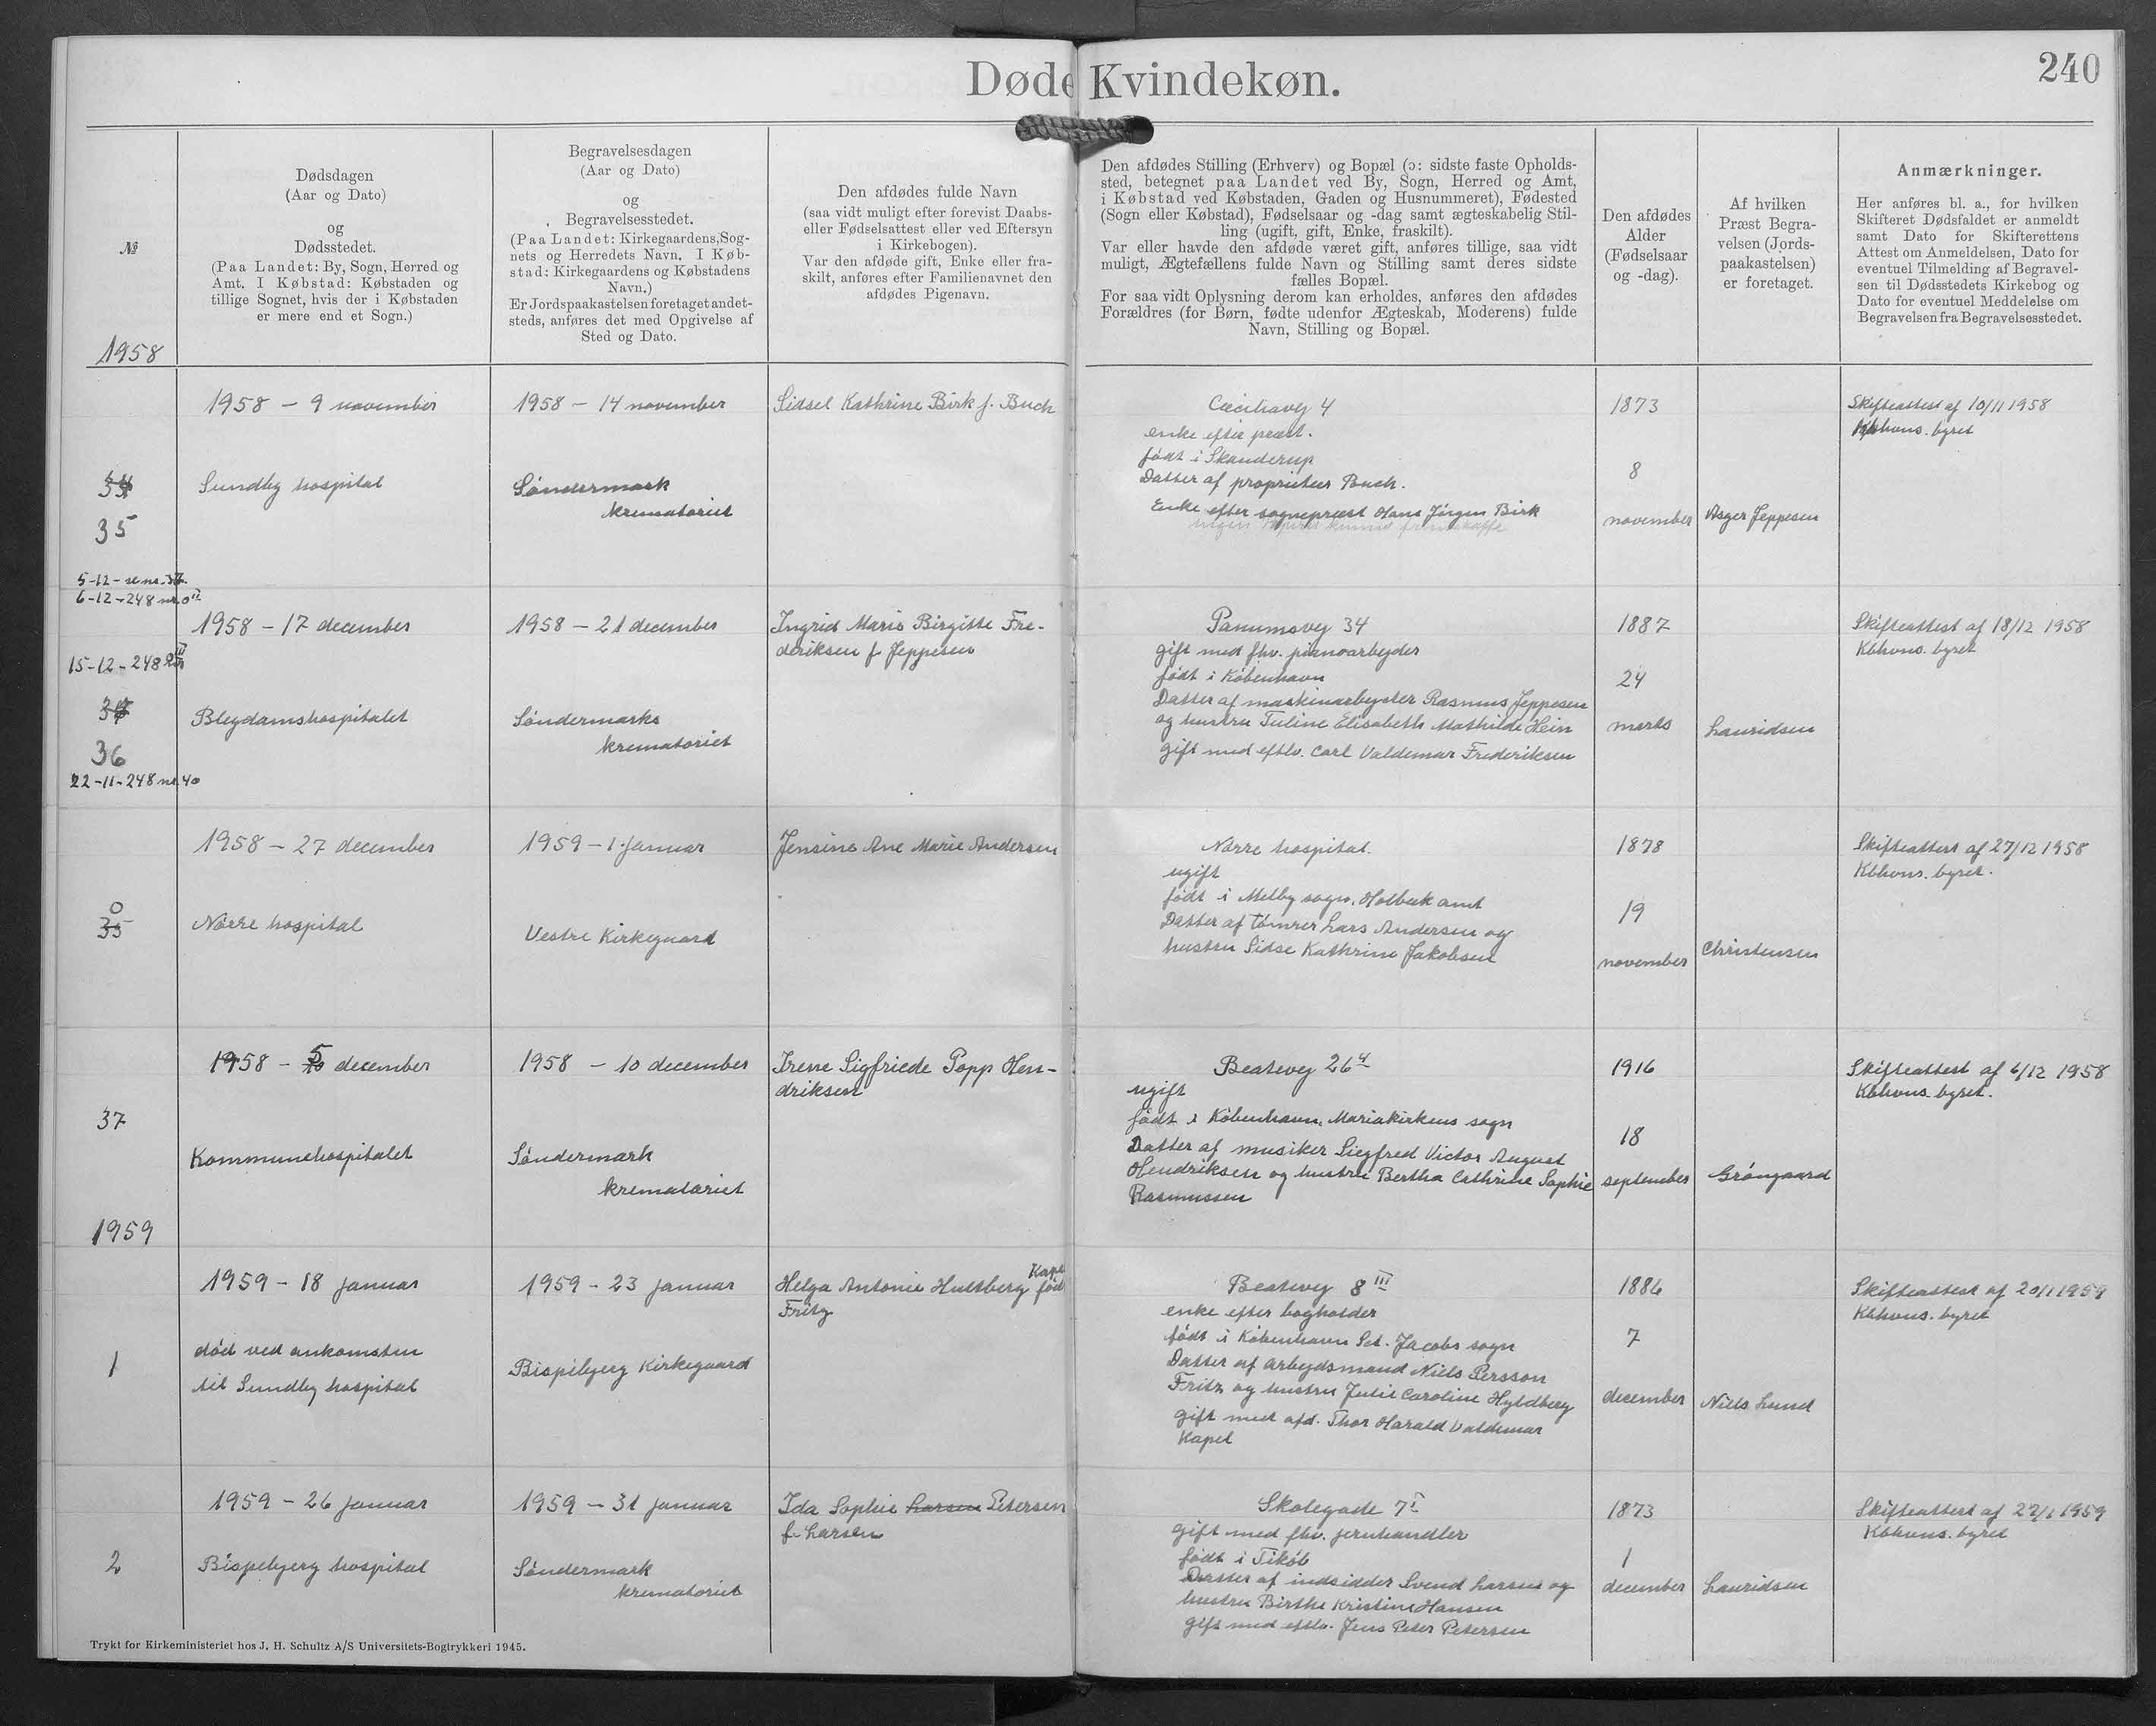 Døde Kvindekøn.
240
№
Dødsdagen
(Aar og Dato)
og
Dødsstedet.
(Paa Landet: By, Sogn, Herred og
Amt. I Købstad: Købstaden og
tillige Sognet, hvis der i Købstaden
er mere end et Sogn.)
Begravelsesdagen
(Aar og Dato)
og
Begravelsesstedet.
(Paa Landet: Kirkegaardens, Sog-
nets og Herredets Navn. I Køb-
stad: Kirkegaardens og Købstadens
Navn.)
Er Jordspaakastelsen foretaget andet-
steds, anføres det med Opgivelse af
Sted og Dato.
Den afdødes fulde Navn
(saa vidt muligt efter forevist Daabs-
eller Fødselsattest eller ved Eftersyn
i Kirkebogen).
Var den afdøde gift, Enke eller fra-
skilt, anføres efter Familienavnet den
afdødes Pigenavn.
Den afdødes Stilling (Erhverv) og Bopæl (ɔ: sidste faste Opholds-
sted, betegnet paa Landet ved By, Sogn, Herred og Amt,
i Købstad ved Købstaden, Gaden og Husnummeret), Fødested
(Sogn eller Købstad), Fødselsaar og -dag samt ægteskabelig Stil-
ling (ugift, gift, Enke, fraskilt).
Var eller havde den afdøde været gift, anføres tillige, saa vidt
muligt, Ægtefællens fulde Navn og Stilling samt deres sidste
fælles Bopæl.
For saa vidt Oplysning derom kan erholdes, anføres den afdødes
Forældres (for Børn, fødte udenfor Ægteskab, Moderens) fulde
Navn, Stilling og Bopæl.
Den afdødes
Alder
(Fødselsaar
og -dag).
Af hvilken
Præst Begra-
velsen (Jords-
paakastelsen)
er foretaget.
Anmærkninger.
Her anføres bl. a., for hvilken
Skifteret Dødsfaldet er anmeldt
samt Dato for Skifterettens
Attest om Anmeldelsen, Dato for
eventuel Tilmelding af Begravel-
sen til Dødsstedets Kirkebog og
Dato for eventuel Meddelelse om
Begravelsen fra Begravelsesstedet.
1958
35
1958 – 9 november
Sundby hospital
1958 – 14 november
Søndermark
krematoriet
Sidsel Kathrine Birk f. Buch
Ceciliavej 4
enke efter præst.
født i Skanderup
Datter af proprietær Buch.
Enke efter sognepræst Hans Jörgen Birk
1873
8
november
Asger Jeppesen
Skifteattest af 10/11 1958
Kbhvns. byret
5-12- se nr. 37.
6-12-248 nr. 0
15-12-248
36
22-11-248 nr. 40
1958 – 17 december
Blegdamshospitalet
1958 – 21 december
Søndermarks
krematoriet
Ingrid Marie Birgitte Fre-
deriksen f. Jeppesen
Panumsvej 34
gift med fhv. pianoarbejder
født i København
Datter af maskinarbejder Rasmus Jeppesen
og hustru Tuline Elisabeth Mathilde Hein
gift med eftlv. Carl Valdemar Frederiksen
1887
24
marts
Lauridsen
Skifteattest af 18/12 1958
Kbhvns. byret
0
35
1958 – 27 december
Nørre hospital
1959 – 1. januar
Vestre Kirkegaard
Jensine Ane Marie Andersen
Nørre hospital.
ugift
født i Melby sogn, Holbæk amt
Datter af tømrer Lars Andersen og
hustru Sidse Kathrine Jakobsen
1878
19
november
Christensen
Skifteattest af 27/12 1958
Kbhvns. byret.
37
1958 – 5 december
Kommunehospitalet
1958 – 10 december
Søndermark
krematoriet
Irene Sigfriede Popp Hen-
driksen
Beatevej 26⁴
ugift
født i København, Mariakirkens sogn
Datter af musiker Siegfred Victor August
Hendriksen og hustru Bertha Cathrine Sophie
Rasmussen
1916
18
september
Gröngaard
Skifteattest af 6/12 1958
Kbhvns. byret.
1959
1
1959 – 18 januar
død ved ankomsten
til Sundby hospital
1959 – 23 januar
Bispebjerg Kirkegaard
Kapel
Helga Antonie Hultberg født
Fritz
Beatevej 8 III
enke efter bogholder
født i København Sct. Jacobs sogn
Datter af arbejdsmand Niels Persson
Fritz og hustru Julie Caroline Hyldberg
gift med afd. Thor Harald Valdemar
Kapel
1886
7
december
Niels Lund
Skifteattest af 20/1 1959
Kbhvns. byret
2
1959 – 26 januar
Bispebjerg hospital
1959 – 31 januar
Søndermark
krematoriet
Ida Sophie Larsen Petersen
f. Larsen
Skolegade 7 I
gift med fhv. jernhandler
født i Tikøb
Datter af indsidder Svend Larsen og
hustru Birthe Kristine Hansen
gift med eftlv. Jens Peter Petersen
1873
1
december
Lauridsen
Skifteattest af 27/1 1959
Kbhvns. byret
Trykt for Kirkeministeriet hos J. H. Schultz A/S Universitets-Bogtrykkeri 1945.